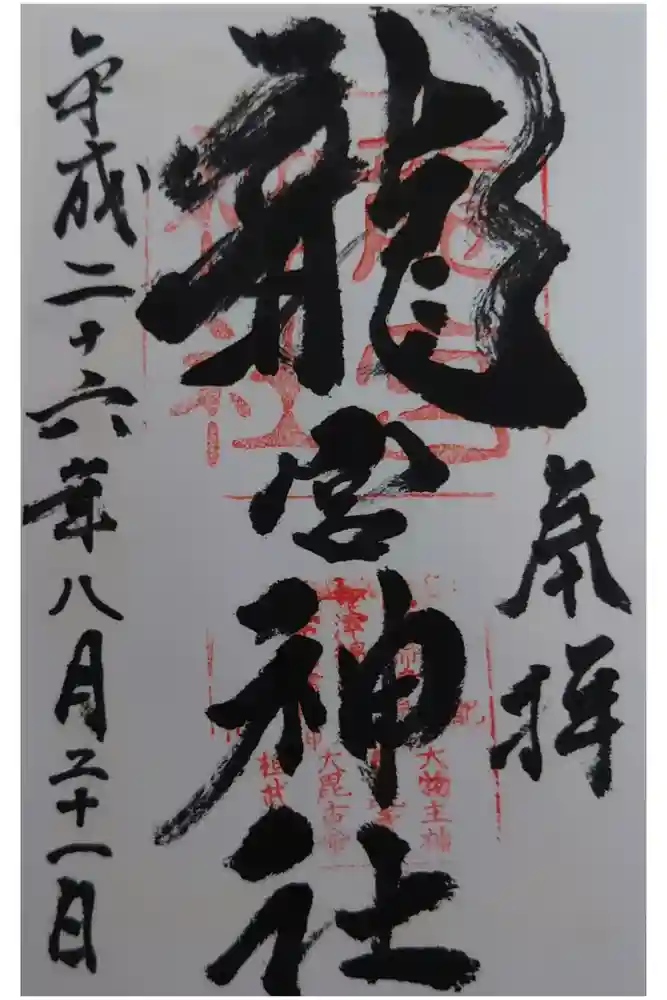 奉拝
龍宮神社
平成二十六年八月二十一日
龍宮
神社
大物主神
大毘古命